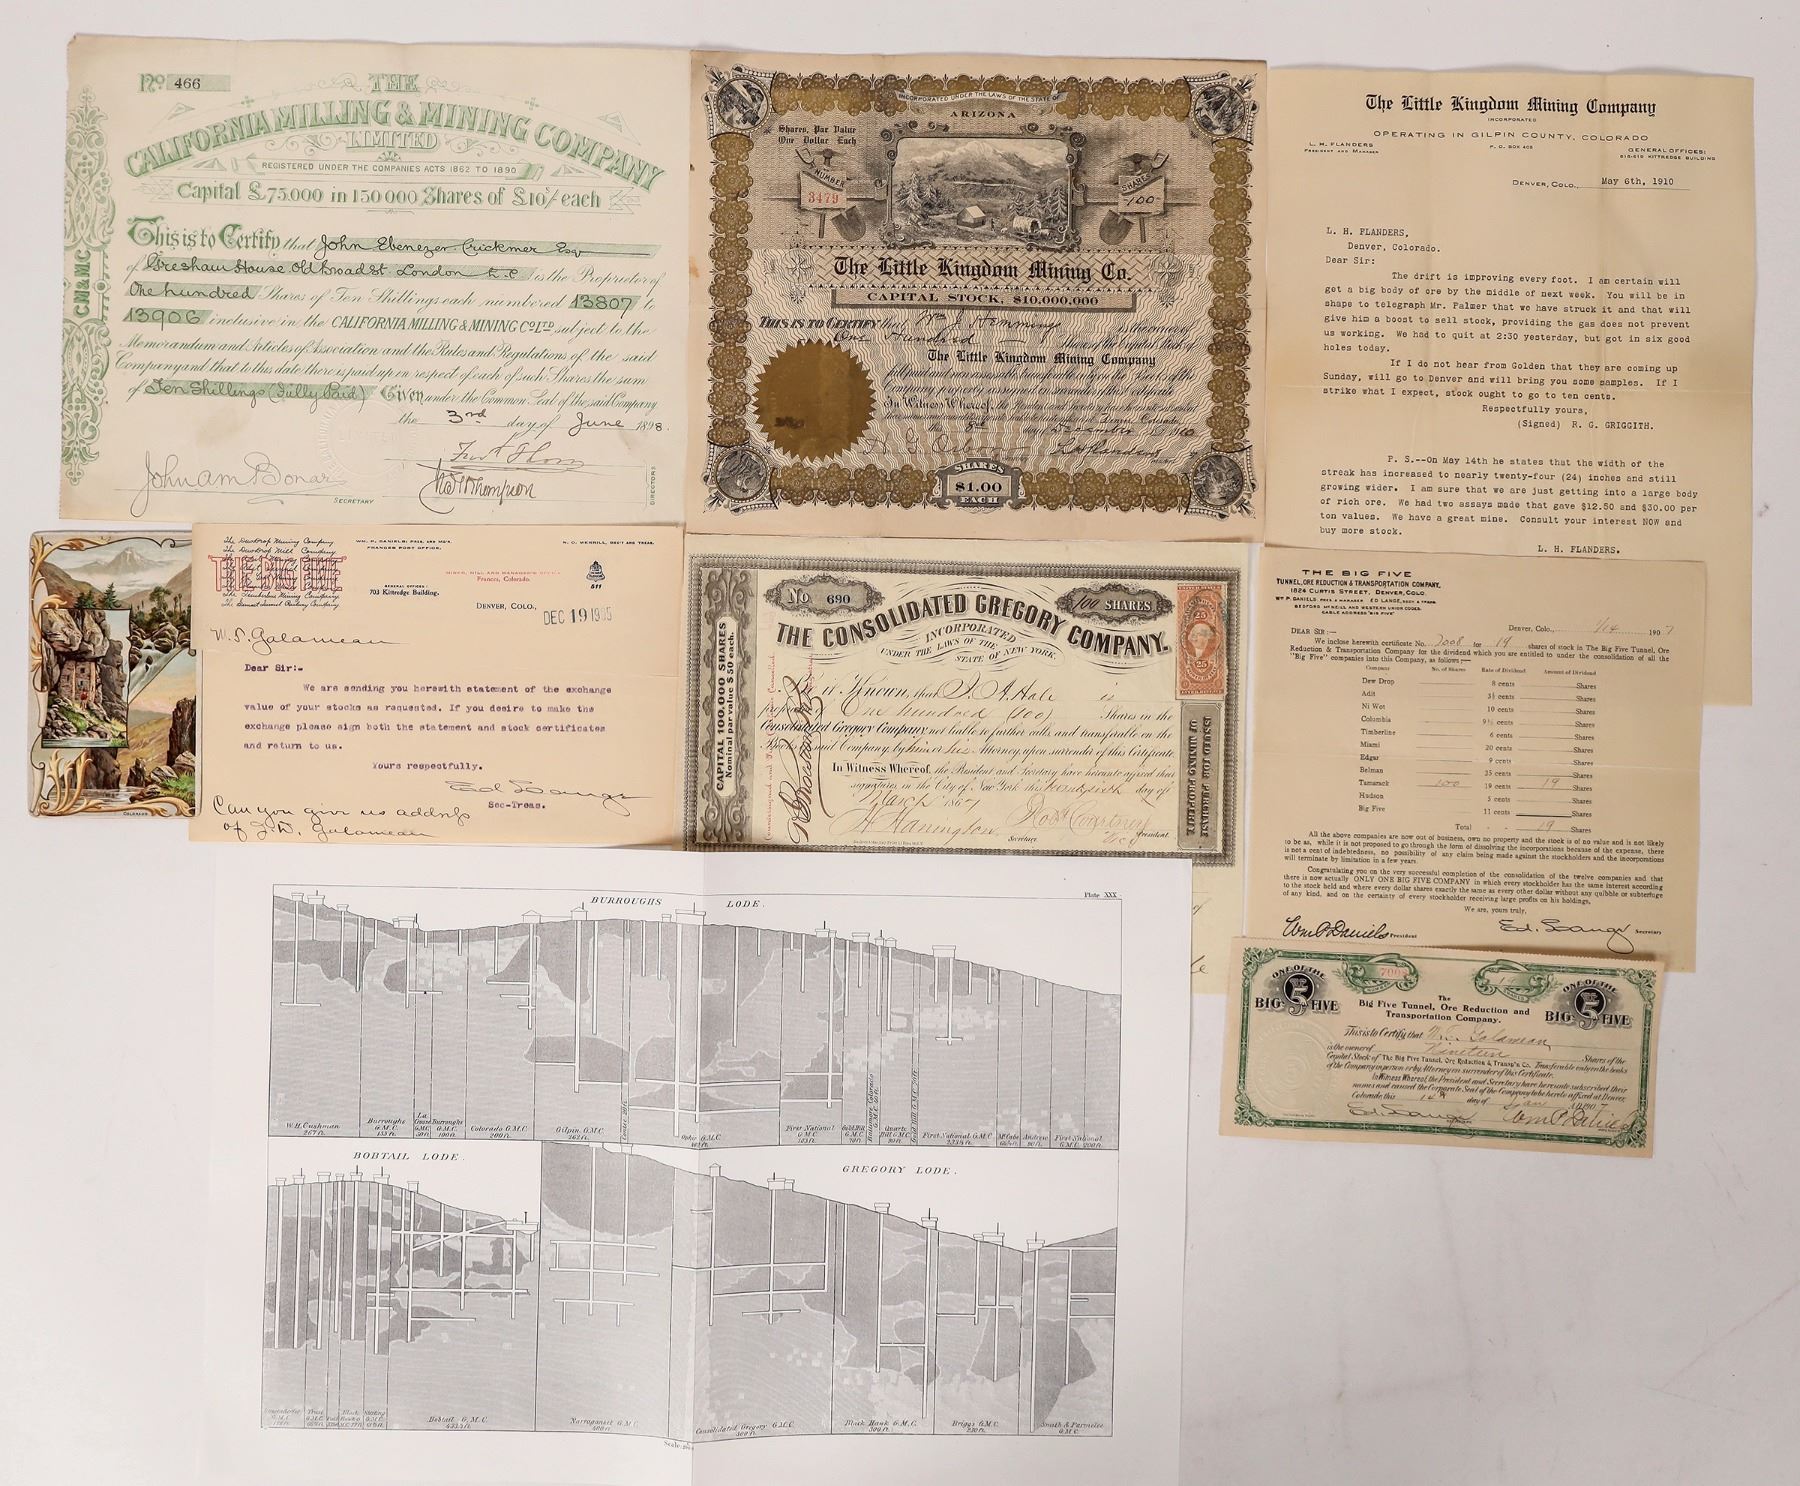 No 466
THE
CALIFORNIA MILLING & MINING COMPANY
LIMITED
REGISTERED UNDER THE COMPANIES ACTS 1862 TO 1890
Capital £75,000 in 150000 Shares of £10s/- each
C.M & M.C
This is to Certify that John Ebenezer Crickmer Esq
of Gresham House Old Broad St. London E.C is the Proprietor of
One hundred Shares of Ten Shillings each numbered 13807 to
13906 inclusive in the CALIFORNIA MILLING & MINING CO LTD subject to the
Memorandum and Articles of Association and the Rules and Regulations of the said
Company and that to this date there is paid up in respect of each of such Shares the sum
of Ten Shillings (Fully Paid) Given under the Common Seal of the said Company
the 3rd day of June 1898.
SECRETARY
DIRECTORS
INCORPORATED UNDER THE LAWS OF THE STATE OF
ARIZONA
Shares, Par Value
One Dollar Each
NUMBER
3479
SHARES
-100-
The Little Kingdom Mining Co.
CAPITAL STOCK, $10,000,000
THIS IS TO CERTIFY that Wm J. Hemming is the owner of
One Hundred Shares of the Capital Stock of
The Little Kingdom Mining Company
In Witness Whereof,
Denver, Colorado,
the 8th day of December 1910
SHARES
$1.00
EACH
The Little Kingdom Mining Company
INCORPORATED
OPERATING IN GILPIN COUNTY, COLORADO
L. H. FLANDERS
PRESIDENT AND MANAGER
P. O. BOX 405
GENERAL OFFICES:
615-619 KITTREDGE BUILDING
DENVER, COLO., May 6th, 1910
L. H. FLANDERS,
Denver, Colorado.
Dear Sir:
The drift is improving every foot. I am certain will
get a big body of ore by the middle of next week. You will be in
shape to telegraph Mr. Palmer that we have struck it and that will
give him a boost to sell stock, providing the gas does not prevent
us working. We had to quit at 2:30 yesterday, but got in six good
holes today.
If I do not hear from Golden that they are coming up
Sunday, will go to Denver and will bring you some samples. If I
strike what I expect, stock ought to go to ten cents.
Respectfully yours,
(Signed) R. G. GRIGGITH.
P. S.--On May 14th he states that the width of the
streak has increased to nearly twenty-four (24) inches and still
growing wider. I am sure that we are just getting into a large body
of rich ore. We had two assays made that gave $12.50 and $30.00 per
ton values. We have a great mine. Consult your interest NOW and
buy more stock.
L. H. FLANDERS.
COLORADO
The Dewdrop Mining Company
The Dewdrop Mill Company
THE BIG FIVE
WM. P. DANIELS, PRES. AND MG'R.
FRANCES POST OFFICE.
N. C. MERRILL, SEC'Y AND TREAS.
GENERAL OFFICES:
703 Kittredge Building.
MINES, MILL AND MANAGER'S OFFICE
Frances, Colorado.
511
DENVER, COLO., DEC 19 1905
W. T. Galamean
Dear Sir:-
We are sending you herewith statement of the exchange
value of your stocks as requested. If you desire to make the
exchange please sign both the statement and stock certificates
and return to us.
Yours respectfully.
Sec-Treas.
Can you give us address
of J. D. Galamean
No 690
100 SHARES
THE CONSOLIDATED GREGORY COMPANY.
INCORPORATED
UNDER THE LAWS OF THE
STATE OF NEW YORK.
CAPITAL 100,000 SHARES
Nominal par value $50 each.
ISSUED FOR PURCHASE
OF MINING PROPERTY.
25
25
Be it Known, that J. A. Hale is
proprietor of One hundred (100) Shares in the
Consolidated Gregory Company not liable to further calls and transferable on the
Books of said Company by him or his Attorney, upon surrender of this Certificate.
In Witness Whereof, the President and Secretary have hereunto affixed their
signatures in the City of New York this twenty sixth day of
March 1867
Secretary
President
THE BIG FIVE
TUNNEL, ORE REDUCTION & TRANSPORTATION COMPANY,
1824 CURTIS STREET, DENVER, COLO.
WM P. DANIELS, PRES. & MANAGER ED LANGE, SECY & TREAS.
BEDFORD MCNEILL AND WESTERN UNION CODES.
CABLE ADDRESS "BIG FIVE"
Denver, Colo., 1/14 1907
DEAR SIR:—
We inclose herewith certificate No. 7008 for 19 shares of stock in The Big Five Tunnel, Ore
Reduction & Transportation Company for the dividend which you are entitled to under the consolidation of all the
"Big Five" companies into this Company, as follows:—
Company No. of Shares Rate of Dividend Amount of Dividend
Dew Drop 8 cents Shares
Adit 3½ cents Shares
Ni Wot 10 cents Shares
Columbia 9½ cents Shares
Timberline 6 cents Shares
Miami 20 cents Shares
Edgar 9 cents Shares
Belman 35 cents Shares
Tamarack 100 19 cents 19 Shares
Hudson 5 cents Shares
Big Five 11 cents Shares
Total 19 Shares
All the above companies are now out of business, own no property and the stock is of no value and is not likely
to be as, while it is not proposed to go through the form of dissolving the incorporations because of the expense, there
is not a cent of indebtedness, no possibility of any claim being made against the stockholders and the incorporations
will terminate by limitation in a few years.
Congratulating you on the very successful completion of the consolidation of the twelve companies and that
there is now actually ONLY ONE BIG FIVE COMPANY in which every stockholder has the same interest according
to the stock held and where every dollar shares exactly the same as every other dollar without any quibble or subterfuge
of any kind, and on the certainty of every stockholder receiving large profits on his holdings,
We are, yours truly,
Wm P Daniels President
Ed. Lange Secretary
ONE OF THE
BIG 5 FIVE
7008
19
ONE OF THE
BIG 5 FIVE
The
Big Five Tunnel, Ore Reduction and
Transportation Company.
This is to Certify that W. T. Galamean
is the owner of Nineteen Shares of the
Capital Stock of The Big Five Tunnel, Ore Reduction & Transp'n Co. Transferable only on the books
of the Company in person or by Attorney on surrender of this Certificate.
In Witness Whereof, the President and Secretary have hereunto subscribed their
names and caused the Corporate Seal of the Company to be hereto affixed at Denver,
Colorado, this 14th day of Jan 1907
Ed Lange Wm P Daniels
Plate XXX.
BURROUGHS LODE.
W.H. Cushman
267 ft.
Burroughs
G.M.C.
Colorado G.M.C.
200 ft.
Gilpin G.M.C.
Ophir G.M.C.
First National
G.M.C.
First National G.M.C.
McCabe
Andrew
First National
G.M.C. 200 ft.
BOBTAIL LODE.
GREGORY LODE.
Bobtail G.M.C.
Narragansett G.M.C.
400 ft.
Consolidated Gregory G.M.C.
500 ft.
Black Hawk G.M.C.
300 ft.
Briggs G.M.C.
Smith & Parmelee
G.M.C.